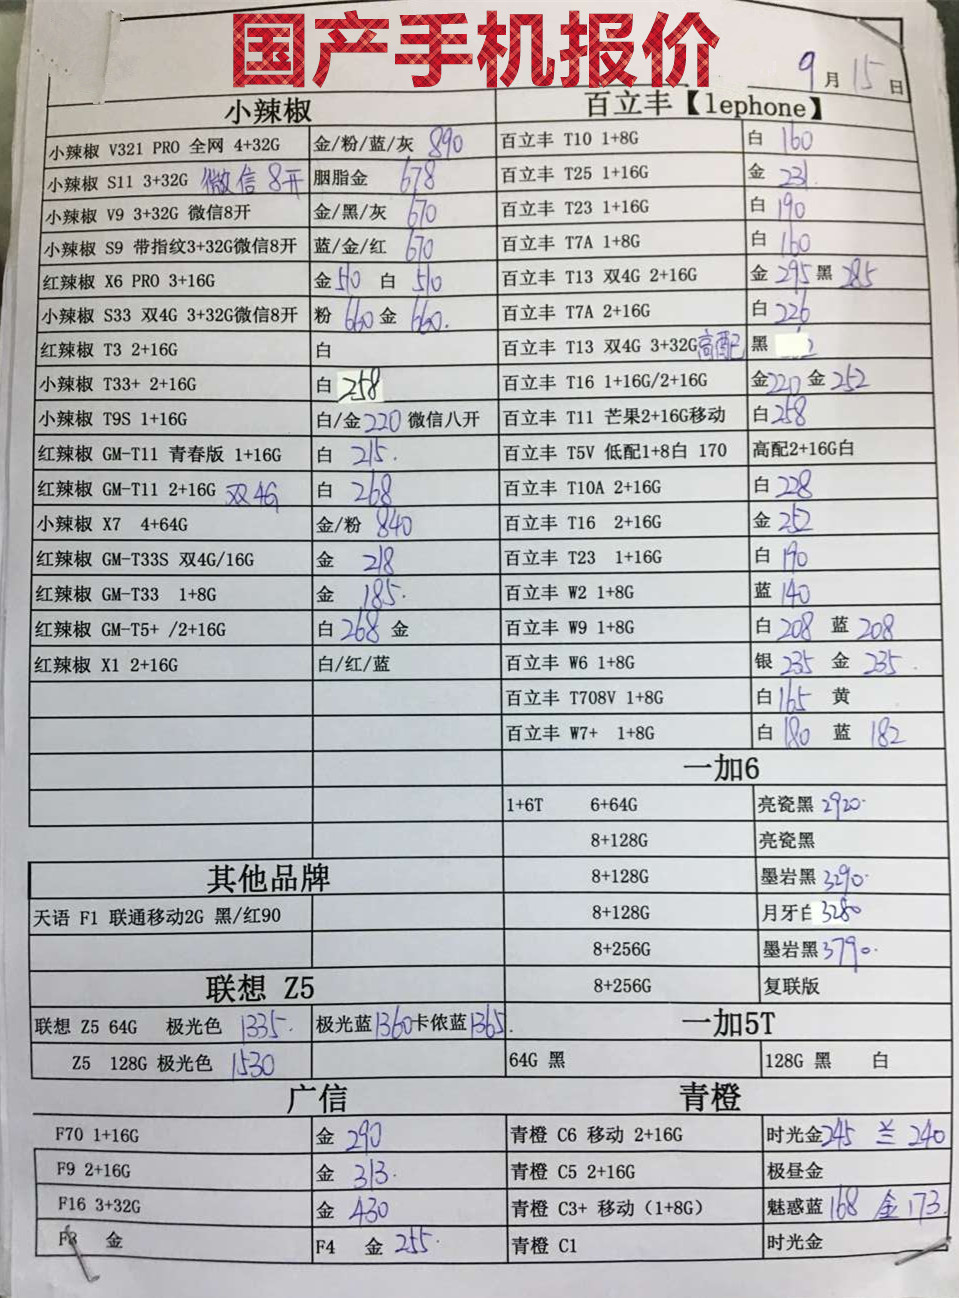 国产手机报价
9月15日
小辣椒
小辣椒 V321 PRO 全网 4+32G 金/粉/蓝/灰 890
小辣椒 S11 3+32G 微信8开 胭脂金 678
小辣椒 V9 3+32G 微信8开 金/黑/灰 670
小辣椒 S9 带指纹3+32G微信8开 蓝/金/红 670
红辣椒 X6 PRO 3+16G 金510 白 510
小辣椒 S33 双4G 3+32G微信8开 粉 660 金 660.
红辣椒 T3 2+16G 白
小辣椒 T33+ 2+16G 白 258
小辣椒 T9S 1+16G 白/金220 微信八开
红辣椒 GM-T11 青春版 1+16G 白 215.
红辣椒 GM-T11 2+16G 双4G 白 268
小辣椒 X7 4+64G 金/粉 840
红辣椒 GM-T33S 双4G/16G 金 218
红辣椒 GM-T33 1+8G 金 185.
红辣椒 GM-T5+ /2+16G 白268 金
红辣椒 X1 2+16G 白/红/蓝
其他品牌
天语 F1 联通移动2G 黑/红90
联想 Z5
联想 Z5 64G 极光色 1335. 极光蓝1360卡侬蓝1365.
Z5 128G 极光色 1530
广信
F70 1+16G 金 290
F9 2+16G 金 313.
F16 3+32G 金 430
F8 金 F4 金 255.
百立丰【lephone】
百立丰 T10 1+8G 白 160
百立丰 T25 1+16G 金 231.
百立丰 T23 1+16G 白 190
百立丰 T7A 1+8G 白 160
百立丰 T13 双4G 2+16G 金 295 黑 285
百立丰 T7A 2+16G 白 226
百立丰 T13 双4G 3+32G高配 黑
百立丰 T16 1+16G/2+16G 金220 金 252
百立丰 T11 芒果2+16G移动 白258
百立丰 T5V 低配1+8白 170 高配2+16G白
百立丰 T10A 2+16G 白 228
百立丰 T16 2+16G 金 252
百立丰 T23 1+16G 白 190
百立丰 W2 1+8G 蓝 140
百立丰 W9 1+8G 白 208 蓝 208
百立丰 W6 1+8G 银 235 金 235.
百立丰 T708V 1+8G 白165 黄
百立丰 W7+ 1+8G 白 180 蓝 182
一加6
1+6T 6+64G 亮瓷黑 2920.
8+128G 亮瓷黑
8+128G 墨岩黑 3290.
8+128G 月牙白 3280
8+256G 墨岩黑3790.
8+256G 复联版
一加5T
64G 黑 128G 黑 白
青橙
青橙 C6 移动 2+16G 时光金245 兰 240
青橙 C5 2+16G 极昼金
青橙 C3+ 移动（1+8G） 魅惑蓝 168 金 173.
青橙 C1 时光金